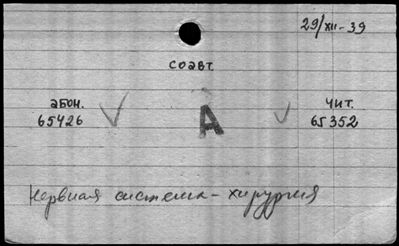 29/XII-39
соавт.
абон. чит.
65426 А 65352
Нервная система - хирургия